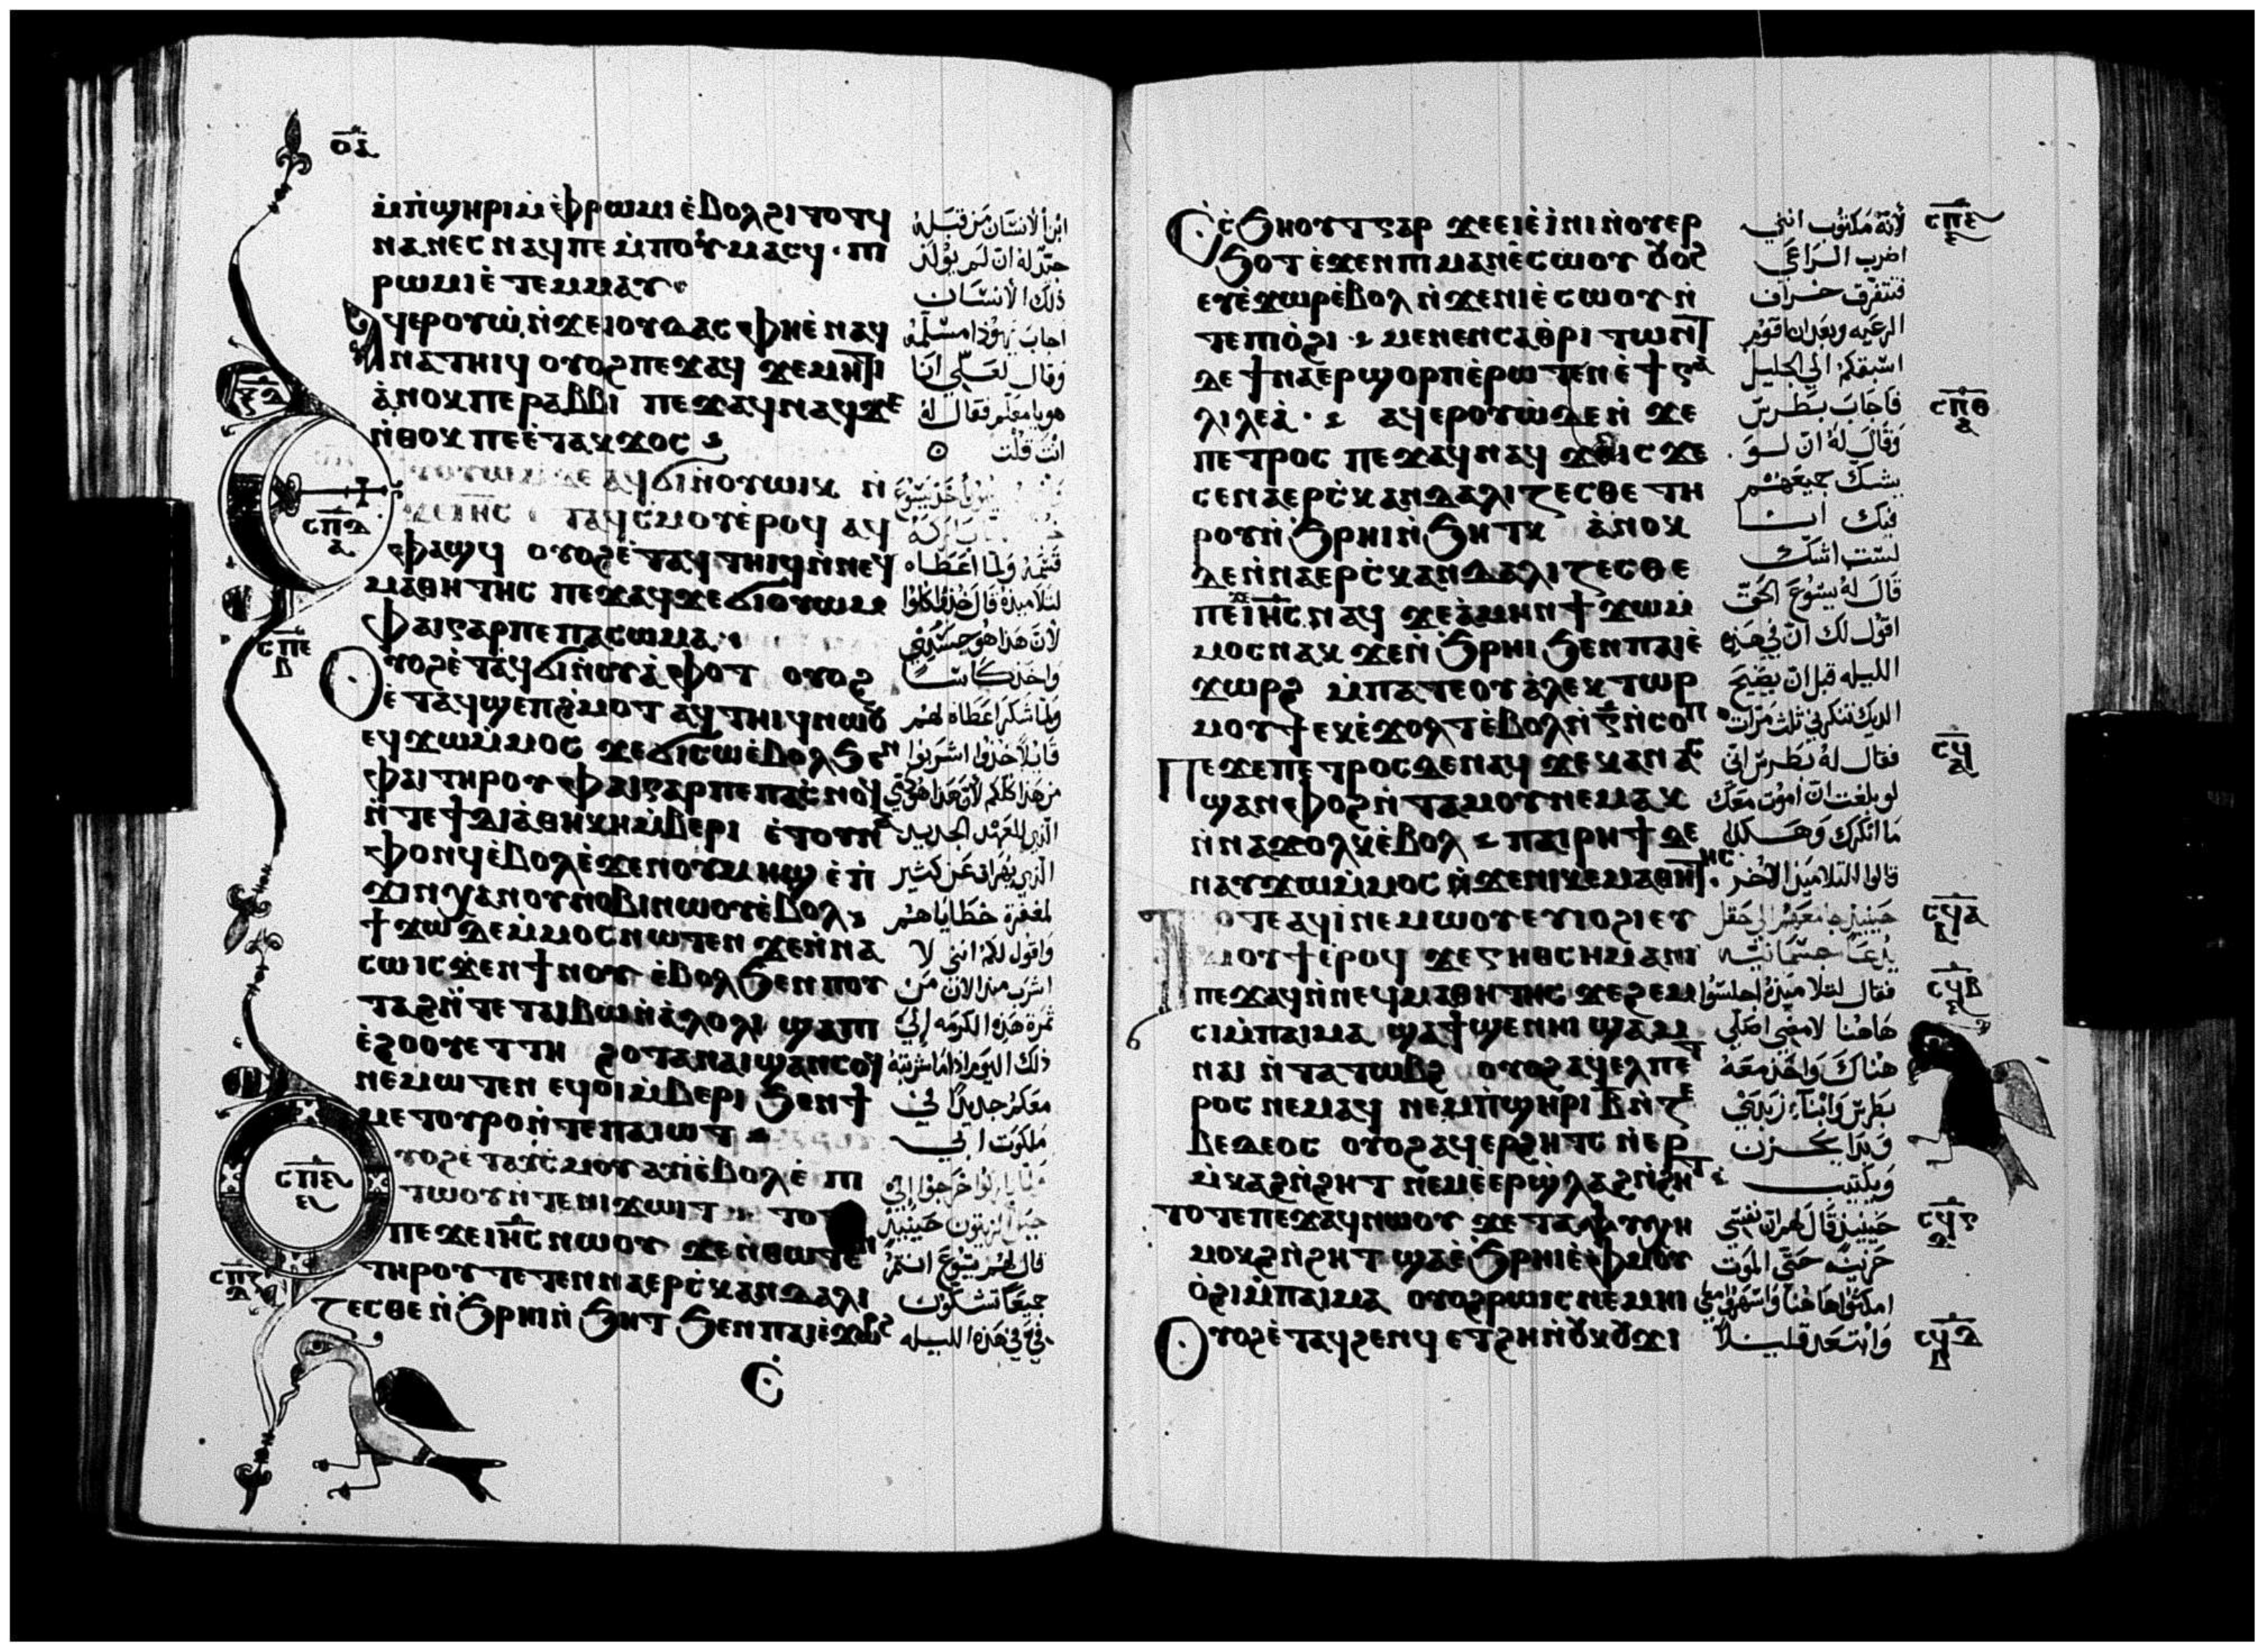 ⲟⲁ
ⲙ̇ⲡ̇ϣⲏⲣⲓⲙ ⲫ̇ⲣⲱⲙⲓ ⲉ̇ⲃⲟⲗϩⲓⲧⲟⲧϥ
ⲛⲁⲛⲉⲥ ⲛⲁϥⲡⲉ ⲙ̇ⲡⲟⲩⲙⲁⲥϥ · ⲡⲓ
ⲣⲱⲙⲓ ⲉ̇ⲧⲉⲙⲙⲁⲩ
ⲁϥⲉⲣⲟⲩⲱ̇ ⲛ̇ϫⲉⲓⲟⲩⲇⲁⲥ ⲫⲏⲉ̇ⲛⲁϥ
ⲛⲁⲧⲏⲓϥ ⲟⲩⲟϩⲡⲉϫⲁϥ ϫⲉⲙⲏϯ
ⲁ̇ⲛⲟⲕⲡⲉ ⲣⲁⲃⲃⲓ ⲡⲉϫⲁϥⲛⲁϥϫⲉ
ⲛ̇ⲑⲟⲕ ⲡⲉⲉ̇ⲧⲁⲕϫⲟⲥ
ⲇⲉ ⲁϥϭⲓⲛ̇ⲟⲩⲱⲓⲕ ⲛ̇
ⲓⲏⲥ ⲧⲁϥⲥ̇ⲙⲟⲩⲉ̇ⲣⲟϥ ⲁϥ
ⲫⲁϣϥ ⲟⲩⲟϩⲉ̇ⲧⲁϥⲧⲏⲓϥⲛ̇ⲛⲉϥ
ⲙⲁⲑⲏⲧⲏⲥ ⲡⲉϫⲁϥϫⲉ ϭⲓⲟⲩⲱⲙ
ⲫⲁⲓⲅⲁⲣⲡⲉ ⲡⲁⲥⲱⲙⲁ
ⲟⲩⲟϩⲉ̇ⲧⲁϥϭⲓⲛ̇ⲟⲩⲁ̇ⲫⲟⲧ ⲟⲩⲟϩ
ⲉ̇ⲧⲁϥϣⲉⲡϩ̇ⲙⲟⲧ ⲁϥⲧⲏⲓϥⲛⲱⲟⲩ
ⲉϥϫⲱⲙ̇ⲙⲟⲥ ϫⲉϭⲓⲥⲱⲉ̇ⲃⲟⲗϧⲉⲛ
ⲫⲁⲓ ⲧⲏⲣⲟⲩ ⲫⲁⲓⲅⲁⲣⲡⲉ ⲡⲁⲥ̇ⲛⲟϥ
ⲛ̇ⲧⲉϯⲇⲓⲁⲑⲏⲕⲏⲙ̇ⲃⲉⲣⲓ ⲉ̇ⲧⲟⲩⲛⲁ
ⲫⲟⲛϥⲉ̇ⲃⲟⲗⲉ̇ϫⲉⲛⲟⲩⲙⲏϣ ⲉ̇ⲡ̇
ϫⲓⲛⲭⲁⲛⲟⲩⲛⲟⲃⲓⲛⲱⲟⲩⲉ̇ⲃⲟⲗ
ϯϫⲱⲇⲉⲙ̇ⲙⲟⲥⲛⲱⲧⲉⲛ ϫⲉⲛ̇ⲛⲁ
ⲥⲱⲓⲥϫⲉⲛϯⲛⲟⲩ ⲉ̇ⲃⲟⲗϧⲉⲛⲡⲟⲩ
ⲧⲁϩⲛ̇ⲧⲉ ⲧⲁⲓⲃⲱⲛ̇ⲁ̇ⲗⲟⲗⲓ ϣⲁⲡⲓ
ⲉ̇ϩⲟⲟⲩⲉⲧⲧⲏ ϩⲟⲧⲁⲛⲁⲓϣⲁⲛⲥⲟϥ
ⲛⲉⲙⲱⲧⲉⲛ ⲉϥⲟⲓⲙ̇ⲃⲉⲣⲓ ϧⲉⲛϯ
ⲙⲉⲧⲟⲩⲣⲟⲛ̇ⲧⲉⲡⲁⲓⲱⲧ
ⲟⲩⲟϩⲉ̇ⲧⲁⲩⲥ̇ⲙⲟⲩ ⲁⲩⲓ̇ⲉ̇ⲃⲟⲗⲉ̇ ⲡⲓ
ⲧⲱⲟⲩⲛ̇ⲧⲉⲛⲓϫⲱⲓⲧ ⲧⲟ
ⲡⲉϫⲉⲓⲏⲥ ⲛⲱⲟⲩ ϫⲉⲛ̇ⲑⲱⲧⲉⲛ
ⲧⲏⲣⲟⲩ ⲧⲉⲧⲉⲛⲛⲁⲉⲣⲥ̇ⲕⲁⲛⲇⲁⲗⲓ
ⲍⲉⲥⲑⲉ ⲛ̇ϧⲣⲏⲓⲛ̇ϧⲏⲧ ϧⲉⲛⲡⲁⲓⲉ̇ϫⲱⲣϩ
ابن الانسان من قبله
حتّر له ان لم يولد
ذلك الانسان
اجاب يهوذا مسلمه
وقال لعلي انا
هو يا معلم فقال له
انت قلت
قسمه ولما اعطاه
لتلاميذه قال خذوا كلوا
لان هذا هو جسدي
واخذ كاسا
ولما شكر اعطاه لهم
قايلا خذوا اشربوا
من هذا كلكم لان هذا هو دمي
الذي للعهد الجديد
الذي يهراق عن كثير
لمغفرة خطاياهم
واقول لكم انني لا
اشرب منذ الان من
ثمرة هذه الكرمه الي
ذلك اليوم اذا ما شربته
معكم جديدا في
ملكوت ابي
خرجوا الي
جبل الزيتون حينيذ
قال لهم يسوع انتم
جميعا تشكون
في في هذه الليله
ⲥⲡⲇ
ⲁ
ⲥⲡⲉ
ⲃ
ⲥⲡⲋ
ⲋ
ⲥⲡⲍ
ⲇ
ⲉ̇
ⲉ̇ⲥ̇ϧⲏⲟⲩⲧⲅⲁⲣ ϫⲉⲉⲓⲉ̇ⲓ̇ⲛⲓⲛ̇ⲟⲩⲉⲣ
ϧⲟⲧ ⲉ̇ϫⲉⲛⲡⲓⲙⲁⲛⲉ̇ⲥⲱⲟⲩ ⲟⲩⲟϩ
ⲉⲩⲉ̇ϫⲱⲣⲉ̇ⲃⲟⲗ ⲛ̇ϫⲉⲛⲓⲉ̇ⲥⲱⲟⲩ ⲛ̇
ⲧⲉⲡⲓⲟ̇ϩⲓ ⲙⲉⲛⲉⲛⲥⲁⲑⲣⲓⲧⲱⲛⲧ
ⲇⲉ ϯⲛⲁⲉⲣϣⲟⲣⲡⲉ̇ⲣⲱⲧⲉⲛ ⲉ̇ϯⲅⲁ
ⲗⲓⲗⲉⲁ̇ · ⲁϥⲉⲣⲟⲩⲱ̇ⲇⲉⲛ̇ϫⲉ
ⲡⲉⲧⲣⲟⲥ ⲡⲉϫⲁϥⲛⲁϥ ϫⲉⲓⲥϫⲉ
ⲥⲉⲛⲁⲉⲣⲥ̇ⲕⲁⲛⲇⲁⲗⲓⲍⲉⲥⲑⲉ ⲧⲏ
ⲣⲟⲩⲛ̇ϧⲣⲏⲓⲛ̇ϧⲏⲧⲕ ⲁ̇ⲛⲟⲕ
ⲇⲉⲛ̇ⲛⲁⲉⲣⲥ̇ⲕⲁⲛⲇⲁⲗⲓⲍⲉⲥⲑⲉ
ⲡⲉϫⲉⲓⲏⲥ ⲛⲁϥ ϫⲉⲁ̇ⲙⲏⲛ ϯϫⲱⲙ̇
ⲙⲟⲥⲛⲁⲕ ϫⲉⲛ̇ϧⲣⲏⲓ ϧⲉⲛⲡⲁⲓⲉ̇
ϫⲱⲣϩ ⲙ̇ⲡⲁⲧⲉⲟⲩⲁ̇ⲗⲉⲕⲧⲱⲣ
ⲙⲟⲩϯ ⲉⲕⲉ̇ϫⲟⲗⲧⲉ̇ⲃⲟⲗⲛ̇ⲅ̅ⲛ̇ⲥⲟⲡ
ⲡⲉϫⲉⲡⲉⲧⲣⲟⲥⲇⲉⲛⲁϥ ϫⲉⲕⲁⲛⲁⲥ
ϣⲁⲛⲫⲟϩⲛ̇ⲧⲁⲙⲟⲩⲛⲉⲙⲁⲕ
ⲛ̇ⲛⲁϫⲟⲗⲕⲉ̇ⲃⲟⲗ ⲡⲁⲓⲣⲏϯ ⲇⲉ
ⲛⲁⲩϫⲱⲙ̇ⲙⲟⲥ ⲛ̇ϫⲉⲛⲓⲕⲉⲙⲁⲑⲏⲧⲏⲥ
ⲧⲟⲧⲉ ⲁϥⲓ̇ⲛⲉⲙⲱⲟⲩ ⲉⲩⲓⲟϩⲓⲉⲩ
ⲙⲟⲩϯⲉ̇ⲣⲟϥ ϫⲉⲅⲏⲑⲥⲏⲙⲁⲛⲓ
ⲡⲉϫⲁϥⲛ̇ⲛⲉϥⲙⲁⲑⲏⲧⲏⲥ ϫⲉϩⲉⲙ
ⲥⲓⲙ̇ⲡⲁⲓⲙⲁ ϣⲁϯϣⲉⲛⲏⲓ ϣⲁⲙ
ⲛⲁⲓ ⲛ̇ⲧⲁⲧⲱⲃϩ ⲟⲩⲟϩⲁϥⲉⲗⲡⲉⲧ
ⲣⲟⲥ ⲛⲉⲙⲁϥ ⲛⲉⲙⲡ̇ϣⲏⲣⲓ ⲃ̅ⲛ̇ⲍⲉ
ⲃⲉⲇⲉⲟⲥ ⲟⲩⲟϩⲁϥⲉⲣϩⲏⲧⲥ ⲛ̇ⲉⲣ
ⲙ̇ⲕⲁϩⲛ̇ϩⲏⲧ ⲛⲉⲙⲉ̇ⲉⲣϣ̇ⲗⲁϩⲛ̇ϩⲏⲧ
ⲧⲟⲧⲉ ⲡⲉϫⲁϥⲛⲱⲟⲩ ϫⲉ ⲧⲁⲯⲩⲭⲏ
ⲙⲟⲕϩⲛ̇ϩⲏⲧ ϣⲁⲉ̇ϧⲣⲏⲓⲉ̇ⲫⲙⲟⲩ
ⲟ̇ϩⲓⲙ̇ⲡⲁⲓⲙⲁ ⲟⲩⲟϩⲣⲱⲓⲥ ⲛⲉⲙⲏⲓ
ⲟⲩⲟϩⲉ̇ⲧⲁϥϩⲉⲛϥ ⲉⲧϩⲏⲛ̇ⲟⲩⲕⲟⲩϫⲓ
لانه مكتوب انني
اضرب الراعي
فتتفرق خراف
الرعيه وبعد ان اقوم
اسبقكم الي الجليل
فاجاب بطرس
وقال له ان لو
يشك جميعهم
فيك انا
لست اشك
قال له يسوع الحق
اقول لك ان في هذه
الليله قبل ان يصيح
الديك تنكرني ثلث مرات
فقال له بطرس اني
لو بلغت ان اموت معك
ما انكرك وهكذا
قالوا التلاميذ الاخر
حينيذ جا معهم الي حقل
يدعا جسمانيه
فقال لتلاميذه اجلسوا
هاهنا لامضي اصلي
هناك واخذ معه
بطرس وابناء زبدي
وبدا يحزن
ويكتيب
حينيذ قال لهم ان نفسي
حزينه حتي الموت
امكثوا هاهنا واسهروا معي
وابتعد قليلا
ⲥⲡⲏ
ⲋ
ⲥⲡⲑ
ⲁ
ⲥϥ
ⲁ
ⲥϥⲁ
ⲁ
ⲥϥⲃ
ⲋ
ⲥϥⲅ
ⲇ
ⲥϥⲇ
ⲃ